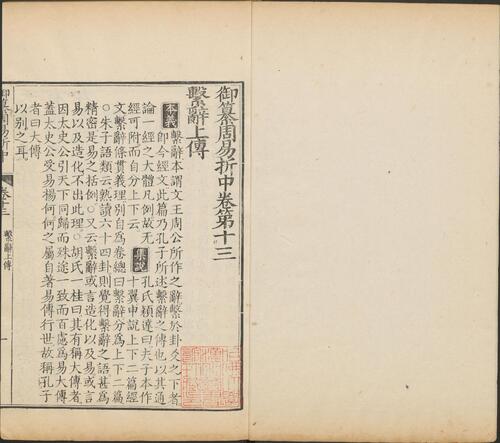 御纂周易折中卷第十三
繫辭上傳
本義 繫辭本謂文王周公所作之辭繫於卦爻之下者
即今經文此篇乃孔子所述繫辭之傳也以其通
論一經之大體凡例故无
經可附而自分上下云 集說 孔氏穎達曰夫子本作
十翼申說上下二篇經
文繫辭條貫義理別自為卷總曰繫辭分為上下二篇
○朱子語類云熟讀六十四卦則覺得繫辭之語甚為
精密是易之括例○又云繫辭或言造化以及易或言
易以及造化不出此理○胡氏一桂曰其有稱大傳者
因太史公引天下同歸而殊途一致而百慮為易大傳
蓋太史公受易楊何何之屬自著易傳行世故稱孔子
者曰大傳
以別之耳
御纂周易折中
卷十三
繫辭上傳
一